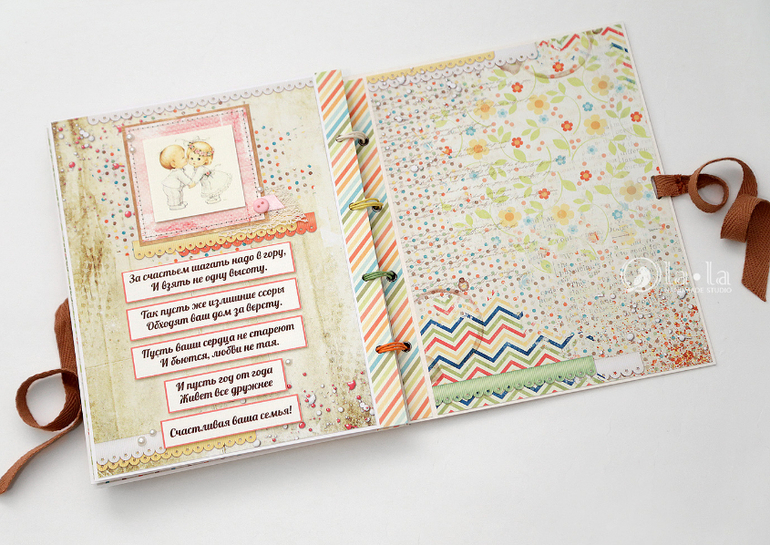 За счастьем шагать надо в гору,
И взять не одну высоту.
Так пусть же излишние ссоры
Обходят ваш дом за версту.
Пусть ваши сердца не стареют
И бьются, любви не тая.
И пусть год от года
Живет все дружнее
Счастливая ваша семья!
la·la
STUDIO